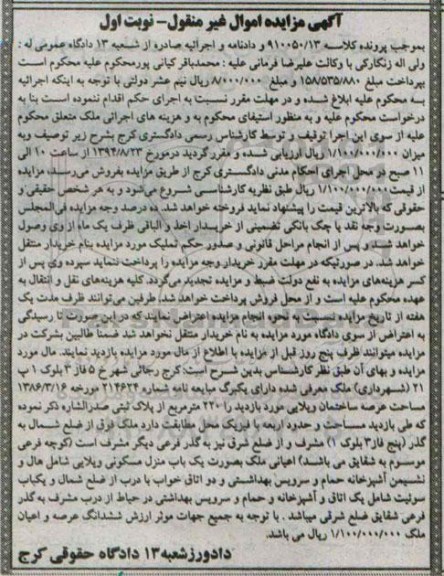 آگهی مزایده اموال غیر منقول- نوبت اول
بموجب پرونده کلاسه ۹۱۰۰۵۰/۱۳ و دادنامه و اجرائیه صادره از شعبه ۱۳ دادگاه عمومی له :
ولی اله زنگارکی با وکالت علیرضا فرمانی علیه : محمدباقر کیانی پورمحکوم علیه محکوم است
بپرداخت مبلغ ۱۵۸/۵۳۵/۸۸۰ و مبلغ ۸/۰۰۰/۰۰۰ ریال نیم عشر دولتی با توجه به اینکه اجرائیه
به محکوم علیه ابلاغ شده و در مهلت مقرر نسبت به اجرای حکم اقدام ننموده است بنا به
درخواست محکوم علیه و به منظور استیفای محکوم به و هزینه های اجرائی ملک متعلق محکوم
علیه از سوی این اجرا توقیف و توسط کارشناس رسمی دادگستری کرج بشرح زیر توصیف وبه
میزان ۱/۱۰۰/۰۰۰/۰۰۰ ریال ارزیابی شده و مقرر گردید درمورخ ۱۳۹۴/۸/۲۳ از ساعت ۱۰ الی
۱۱ صبح در محل اجرای احکام مدنی دادگستری کرج از طریق مزایده بفروش می رسد. مزایده
از قیمت ۱/۱۰۰/۰۰۰/۰۰۰ ریال طبق نظریه کارشناسی شروع می شود و به هر شخص حقیقی و
حقوقی که بالاترین قیمت را پیشنهاد نماید فروخته خواهد شد. ده درصد وجه مزایده فی المجلس
بصورت وجه نقد یا چک بانکی تضمینی از خریدار اخذ و الباقی ظرف یک ماه از وی وصول
خواهد شد و پس از انجام مراحل قانونی و صدور حکم تملیک مورد مزایده بنام خریدار منتقل
خواهد شد. در صورتیکه در مهلت مقرر خریدار وجه مزایده را پرداخت ننماید سپرده وی پس از
کسر هزینه های مزایده به نفع دولت ضبط و مزایده تجدید می گردد. کلیه هزینه های نقل و انتقال به
عهده محکوم علیه است و از محل فروش پرداخت خواهد شد. طرفین می توانند ظرف مدت یک
هفته از تاریخ مزایده نسبت به نحوه انجام مزایده اعتراض نمایند که در این صورت تا رسیدگی
به اعتراض از سوی دادگاه مورد مزایده به نام خریدار منتقل نخواهد شد ضمناً طالبین بشرکت در
مزایده میتوانند ظرف پنج روز قبل از مزایده با اطلاع از مال مورد مزایده بازدید نمایند. مال مورد
مزایده و بهای آن طبق نظر کارشناس بدین شرح است: کرج رجائی شهر خ ۵ فاز ۳ بلوک ۱ پ
۲۱ (شهرداری) ملک معرفی شده دارای یکبرگ مبایعه نامه شماره ۲۱۴۶۲۴ مورخه ۱۳۸۶/۳/۱۶
مساحت عرصه ساختمان ویلایی مورد بازدید را ۲۲۰ مترمربع از پلاک ثبتی صدرالشاره ذکر نموده
که طی بازدید مساحت و حدود اربعه با فیزیک محل مطابقت دارد ملک فوق از ضلع شمال به
گذر (پنج فاز۳ بلوک ۱) مشرف و از ضلع شرق نیز به گذر فرعی دیگر مشرف است (کوچه فرعی
موسوم به شقایق می باشد) اعیانی ملک بصورت یک باب منزل مسکونی ویلایی شامل هال و
نشیمن آشپزخانه حمام و سرویس بهداشتی و دو اتاق خواب با درب از ضلع شمال و یکباب
سوئیت شامل یک اتاق و آشپزخانه و حمام و سرویس بهداشتی در حیاط از درب مشرف به گذر
فرعی شقایق ضلع شرقی میباشد . با توجه به جمیع جهات موثر ارزش ششدانگ عرصه و اعیان
ملک ۱/۱۰۰/۰۰۰/۰۰۰ ریال می باشد.
دادورزشعبه ۱۳ دادگاه حقوقی کرج